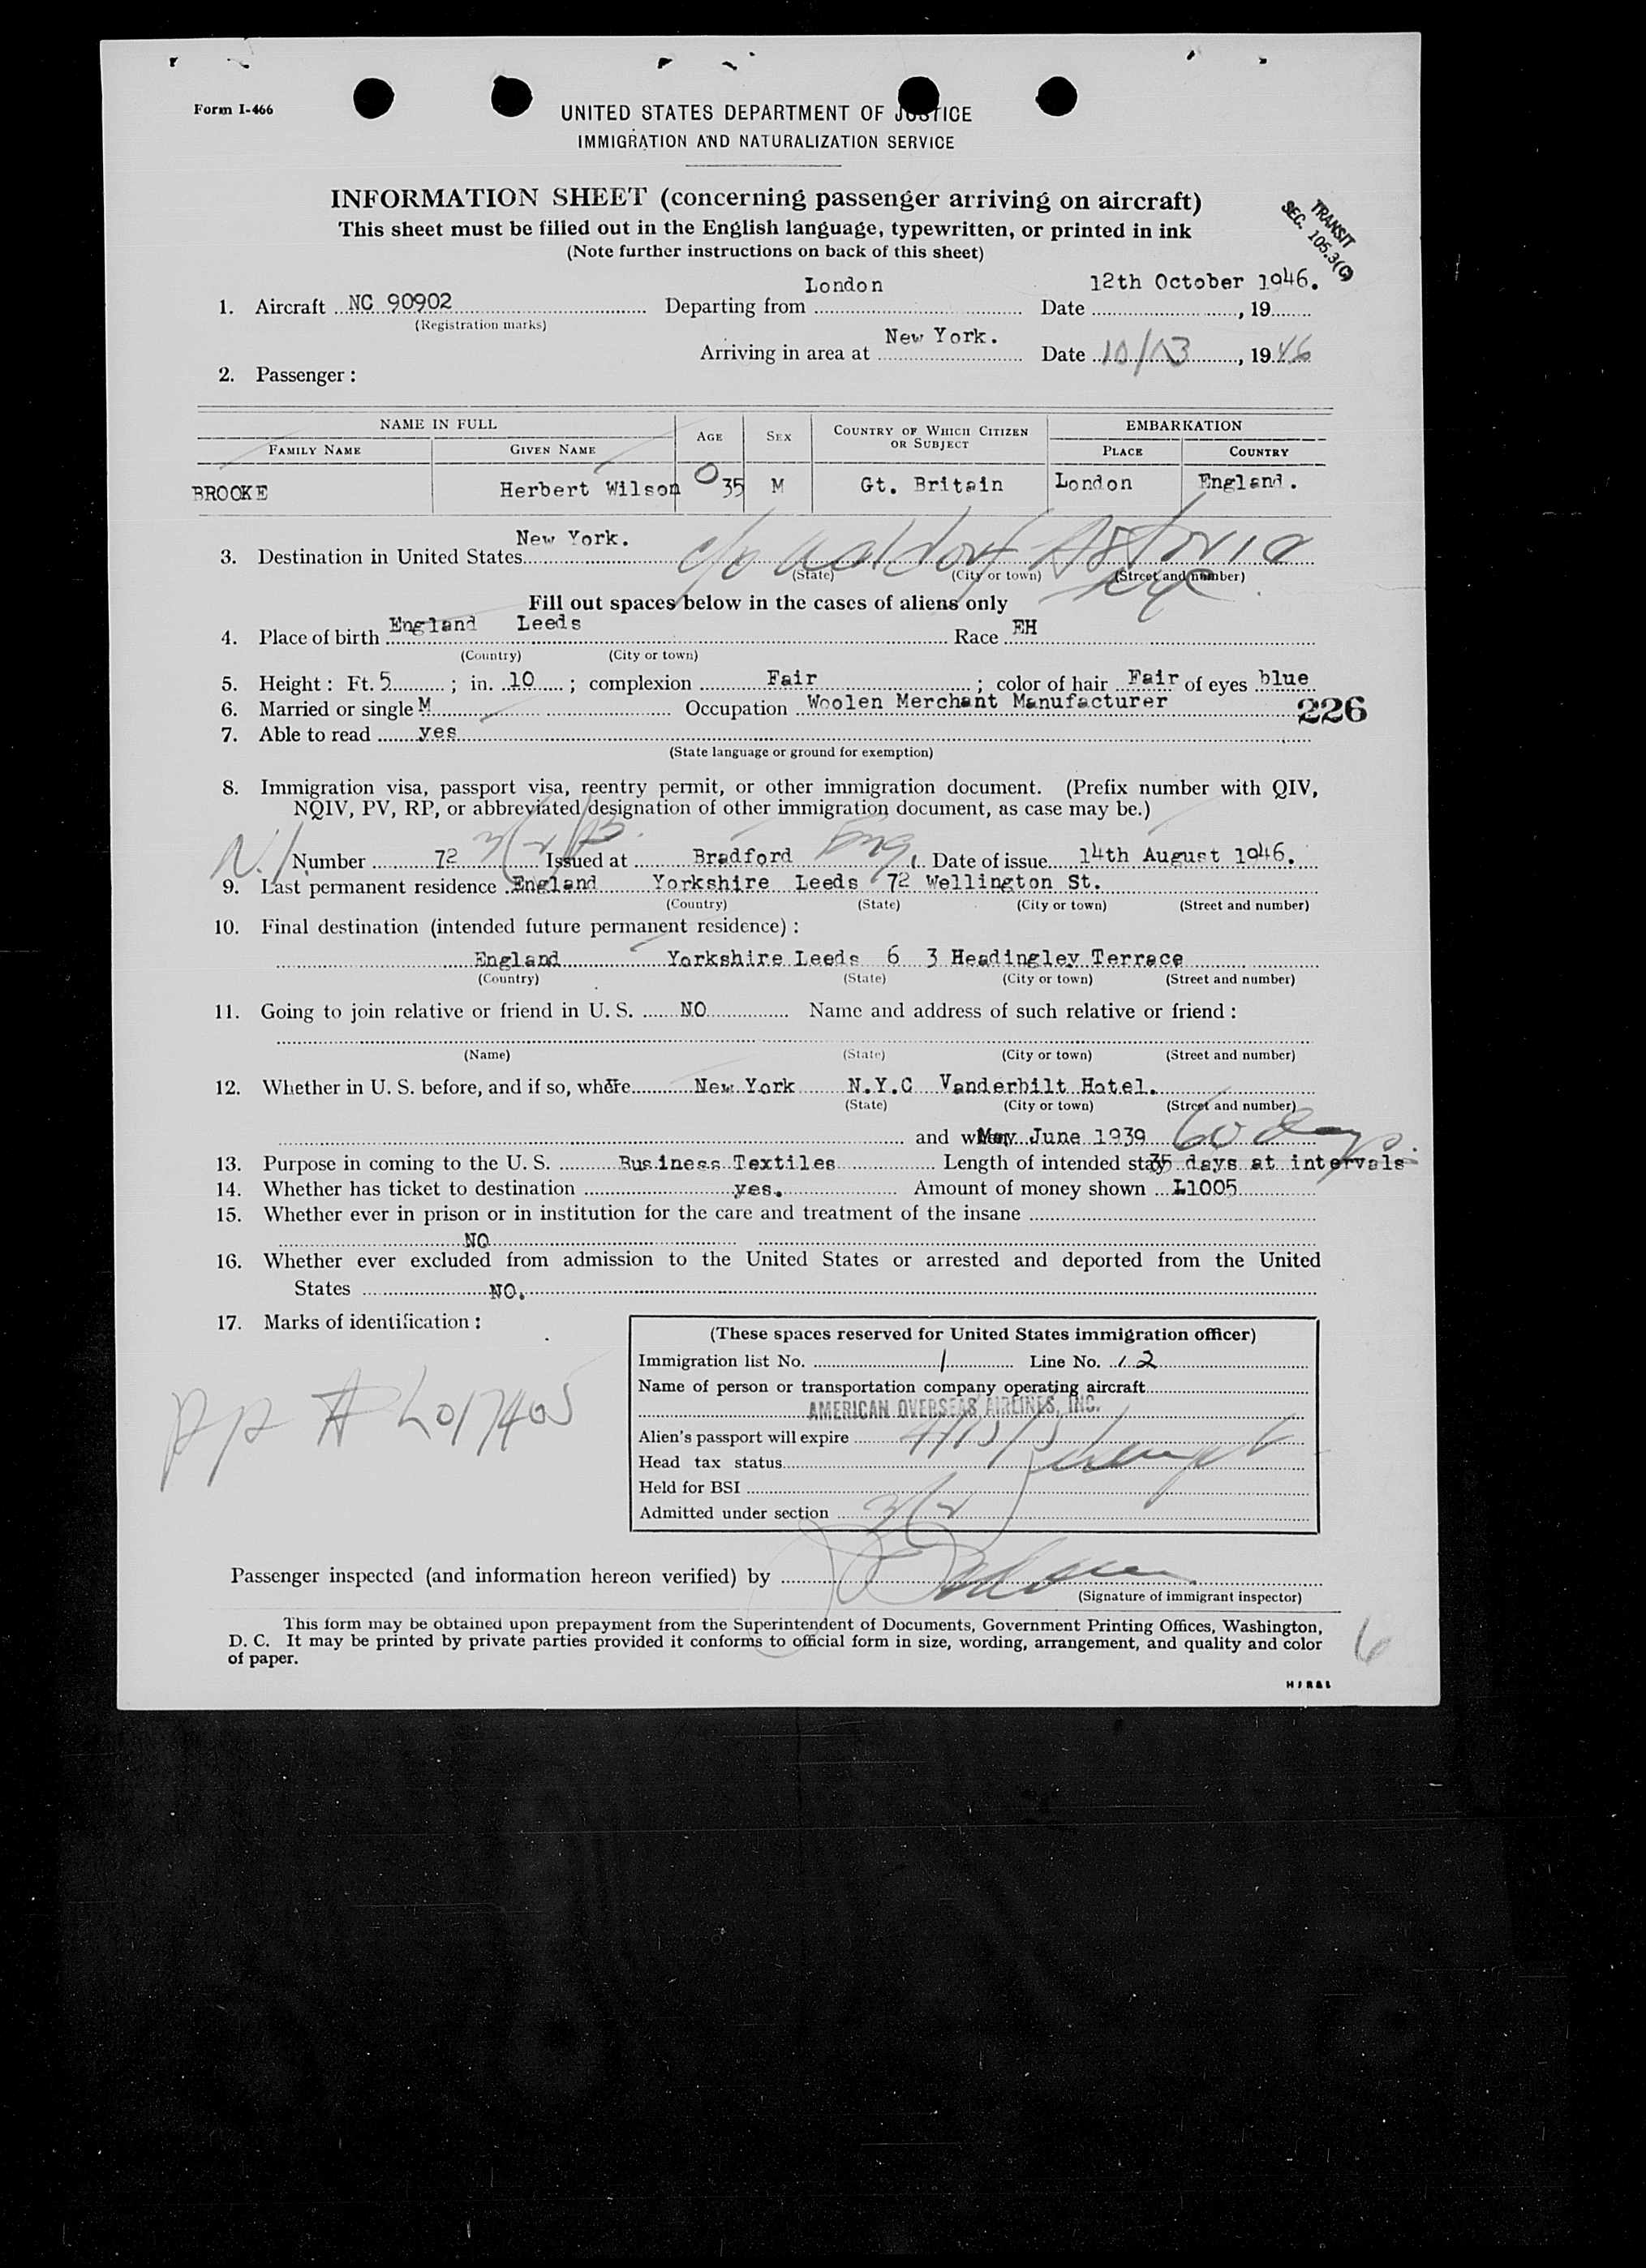 Form I-466
UNITED STATES DEPARTMENT OF JUSTICE
IMMIGRATION AND NATURALIZATION SERVICE
INFORMATION SHEET (concerning passenger arriving on aircraft)
This sheet must be filled out in the English language, typewritten, or printed in ink
(Note further instructions on back of this sheet)
TRANSIT
SEC. 105.3(C)
1. Aircraft NC 90902 Departing from London Date 12th October 1946. , 19
(Registration marks)
Arriving in area at New York. Date 10/13, 1946
2. Passenger:
NAME IN FULL AGE SEX COUNTRY OF WHICH CITIZEN OR SUBJECT EMBARKATION
FAMILY NAME GIVEN NAME PLACE COUNTRY
BROOKE Herbert Wilson 35 M Gt. Britain London England.
3. Destination in United States New York. c/o Waldorf Astoria
(State) (City or town) (Street and number)
NYC
Fill out spaces below in the cases of aliens only
4. Place of birth England Leeds Race EH
(Country) (City or town)
5. Height: Ft. 5 ; in. 10 ; complexion Fair ; color of hair Fair of eyes blue
6. Married or single M Occupation Woolen Merchant Manufacturer
226
7. Able to read yes
(State language or ground for exemption)
8. Immigration visa, passport visa, reentry permit, or other immigration document. (Prefix number with QIV,
NQIV, PV, RP, or abbreviated designation of other immigration document, as case may be.)
Number 72 Issued at Bradford Eng. Date of issue 14th August 1946.
9. Last permanent residence England Yorkshire Leeds 72 Wellington St.
(Country) (State) (City or town) (Street and number)
10. Final destination (intended future permanent residence):
England Yorkshire Leeds 6 3 Headingley Terrace
(Country) (State) (City or town) (Street and number)
11. Going to join relative or friend in U. S. NO Name and address of such relative or friend:
(Name) (State) (City or town) (Street and number)
12. Whether in U. S. before, and if so, where New York N.Y.C Vanderbilt Hotel.
(State) (City or town) (Street and number)
and when May June 1939 60 days
13. Purpose in coming to the U. S. Business Textiles Length of intended stay 35 days at intervals
14. Whether has ticket to destination yes. Amount of money shown L1005
15. Whether ever in prison or in institution for the care and treatment of the insane
NO
16. Whether ever excluded from admission to the United States or arrested and deported from the United
States NO.
17. Marks of identification:
pp # L017405
(These spaces reserved for United States immigration officer)
Immigration list No. 1 Line No. 12
Name of person or transportation company operating aircraft
AMERICAN OVERSEAS AIRLINES, INC.
Alien's passport will expire
Head tax status exempt
Held for BSI
Admitted under section 3(2)
Passenger inspected (and information hereon verified) by
(Signature of immigrant inspector)
This form may be obtained upon prepayment from the Superintendent of Documents, Government Printing Offices, Washington,
D. C. It may be printed by private parties provided it conforms to official form in size, wording, arrangement, and quality and color
of paper.
6